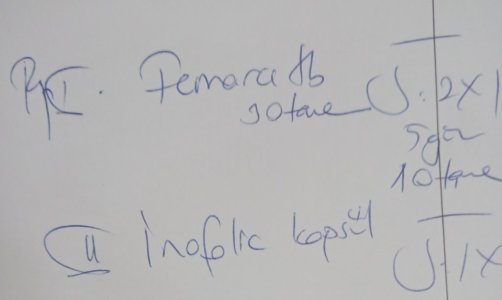 Rp I. Femara tb S: 2x1
30 tane 5 gün
10 tane
II İnofolic kapsül S: 1x